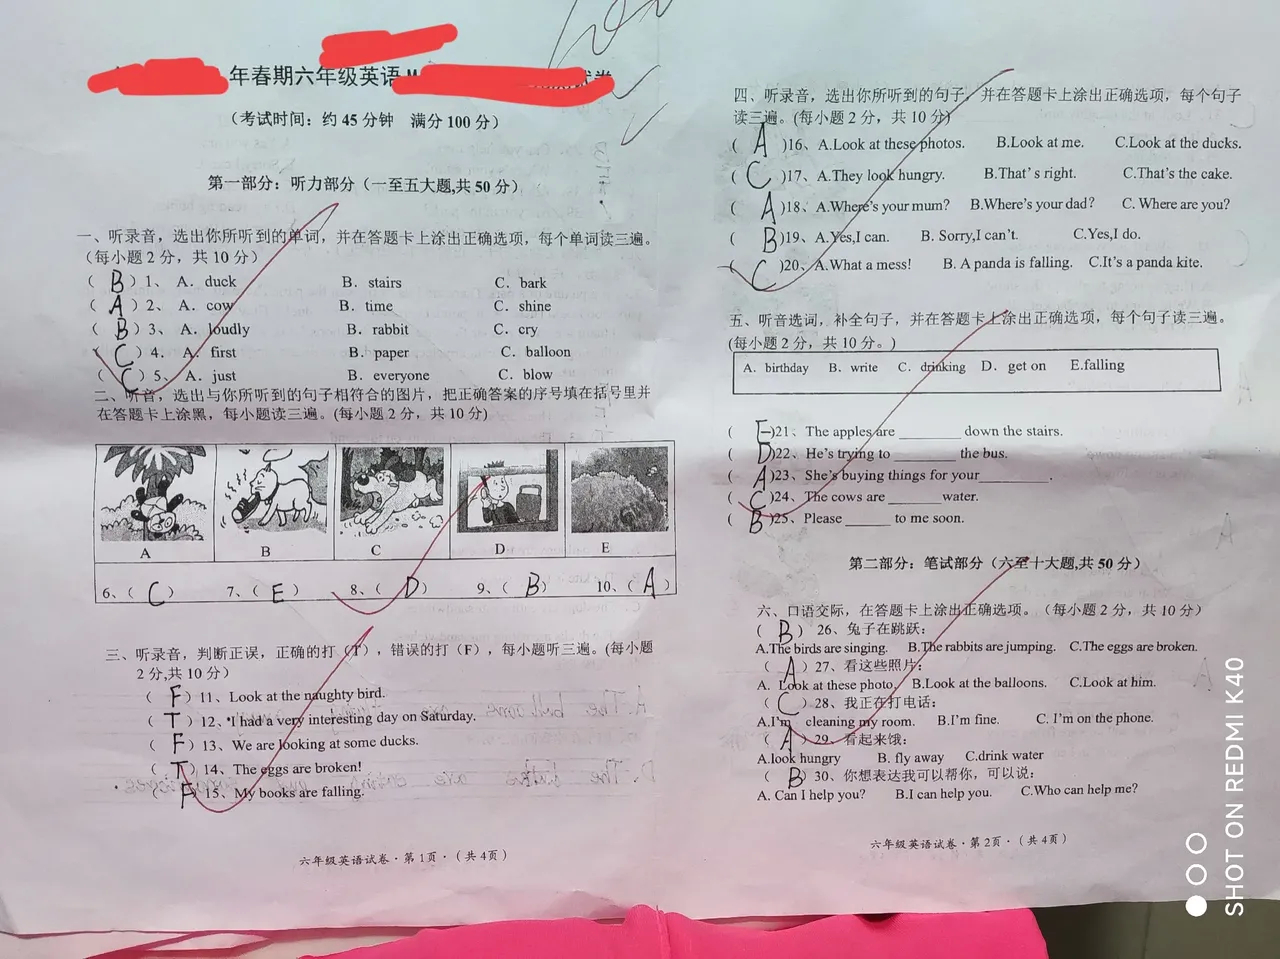 年春期六年级英语
试卷
（考试时间：约 45 分钟　满分 100 分）
第一部分：听力部分（一至五大题,共 50 分）
一、听录音，选出你所听到的单词，并在答题卡上涂出正确选项，每个单词读三遍。
（每小题 2 分，共 10 分）
（ B ）1、 A．duck B．stairs C．bark
（ A ）2、 A．cow B．time C．shine
（ B ）3、 A．loudly B．rabbit C．cry
（ C ）4． A．first B．paper C．balloon
（ C ）5、 A．just B．everyone C．blow
二、听音，选出与你所听到的句子相符合的图片，把正确答案的序号填在括号里并
在答题卡上涂黑，每小题读三遍。(每小题 2 分，共 10 分)
A B C D E
6、（ C ） 7、（ E ） 8、（ D ） 9、（ B ） 10、（ A ）
三、听录音，判断正误，正确的打（T），错误的打（F），每小题听三遍。(每小题
2 分,共 10 分）
（ F ）11、Look at the naughty bird.
（ T ）12、I had a very interesting day on Saturday.
（ F ）13、We are looking at some ducks.
（ T ）14、The eggs are broken!
（ F ）15、My books are falling.
六年级英语试卷·第 1页·（共 4页）
四、听录音，选出你所听到的句子，并在答题卡上涂出正确选项，每个句子
读三遍。(每小题 2 分，共 10 分)
( A )16、A.Look at these photos. B.Look at me. C.Look at the ducks.
( C )17、A.They look hungry. B.That's right. C.That's the cake.
( A )18、A.Where's your mum? B.Where's your dad? C. Where are you?
( B )19、A.Yes,I can. B. Sorry,I can't. C.Yes,I do.
( C )20、A.What a mess! B. A panda is falling. C.It's a panda kite.
五、听音选词，补全句子，并在答题卡上涂出正确选项，每个句子读三遍。
(每小题 2 分，共 10 分。)
A．birthday B．write C．drinking D．get on E.falling
( E )21、The apples are ________ down the stairs.
( D )22、He's trying to ________ the bus.
( A )23、She's buying things for your_________.
( C )24、The cows are _______ water.
( B )25、Please ______ to me soon.
第二部分：笔试部分（六至十大题,共 50 分）
六、口语交际，在答题卡上涂出正确选项。（每小题 2 分，共 10 分）
（ B ） 26、兔子在跳跃：
A.The birds are singing. B.The rabbits are jumping. C.The eggs are broken.
（ A ）27、看这些照片：
A. Look at these photo. B.Look at the balloons. C.Look at him.
（ C ）28、我正在打电话：
A.I'm cleaning my room. B.I'm fine. C. I'm on the phone.
（ A ）29、看起来饿：
A.look hungry B. fly away C.drink water
（ B ）30、你想表达我可以帮你，可以说：
A. Can I help you? B.I can help you. C.Who can help me?
六年级英语试卷·第 2页·（共 4页）
SHOT ON REDMI K40